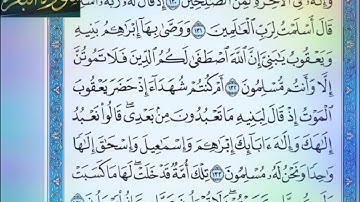 وَإِنَّهُۥ فِى ٱلْءَاخِرَةِ لَمِنَ ٱلصَّٰلِحِينَ ١٣٠ إِذْ قَالَ لَهُۥ رَبُّهُۥٓ
قَالَ أَسْلَمْتُ لِرَبِّ ٱلْعَٰلَمِينَ ١٣١ وَوَصَّىٰ بِهَآ إِبْرَٰهِۦمُ بَنِيهِ
وَيَعْقُوبُ يَٰبَنِىَّ إِنَّ ٱللَّهَ ٱصْطَفَىٰ لَكُمُ ٱلدِّينَ فَلَا تَمُوتُنَّ
إِلَّا وَأَنتُم مُّسْلِمُونَ ١٣٢ أَمْ كُنتُمْ شُهَدَآءَ إِذْ حَضَرَ يَعْقُوبَ
ٱلْمَوْتُ إِذْ قَالَ لِبَنِيهِ مَا تَعْبُدُونَ مِنۢ بَعْدِى قَالُوا۟ نَعْبُدُ
إِلَٰهَكَ وَإِلَٰهَ ءَابَآئِكَ إِبْرَٰهِۦمَ وَإِسْمَٰعِيلَ وَإِسْحَٰقَ إِلَٰهًا
وَٰحِدًا وَنَحْنُ لَهُۥ مُسْلِمُونَ ١٣٣ تِلْكَ أُمَّةٌ قَدْ خَلَتْ لَهَا مَا كَسَبَتْ